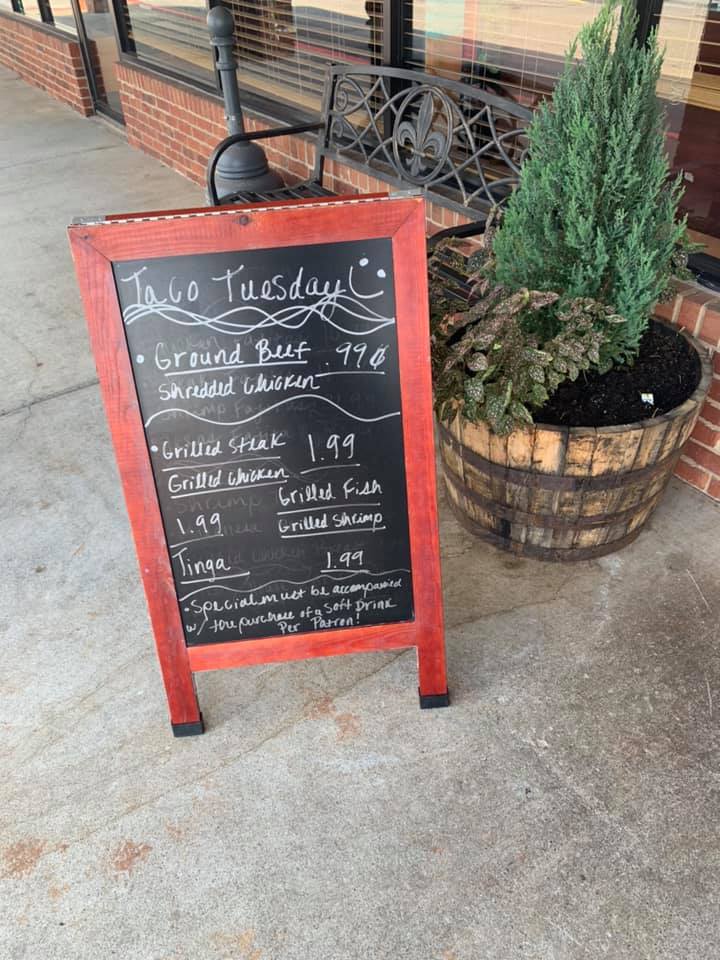 Taco Tuesday!
• Ground Beef .99¢
Shredded Chicken
• Grilled Steak 1.99
Grilled Chicken
Grilled Fish
1.99 Grilled Shrimp
Tinga 1.99
• Special must be accompanied
w/ the purchase of a Soft Drink
Per Patron!